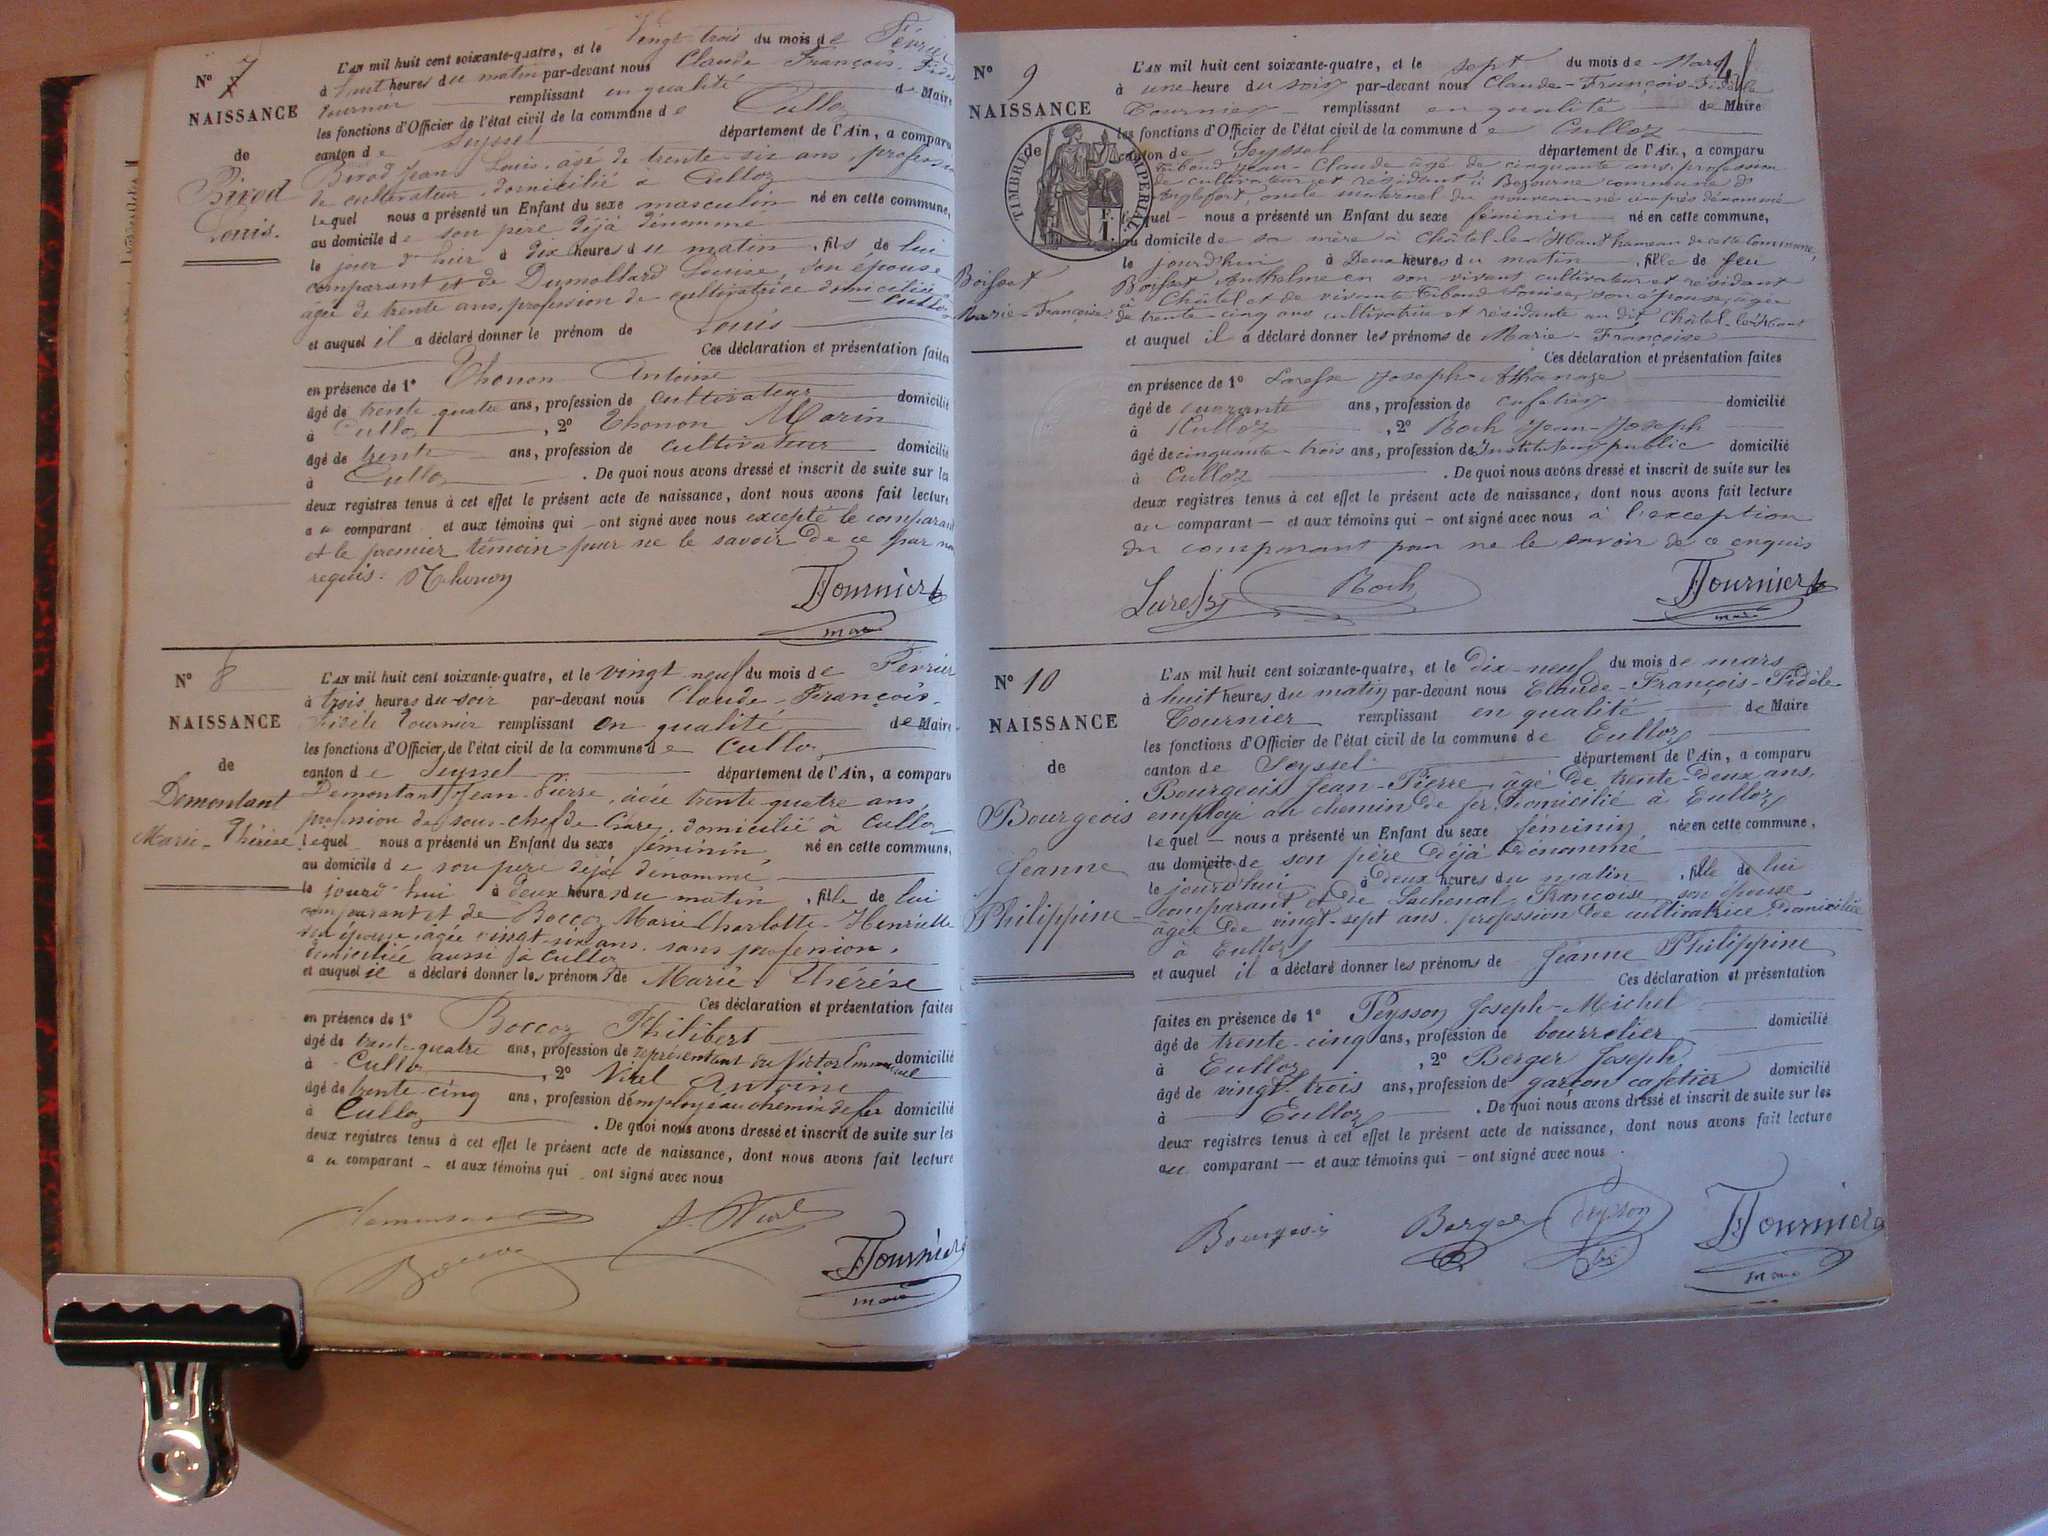 Nº 7
NAISSANCE
de
Birod
Louis.
L'AN mil huit cent soixante-quatre, et le Vingt trois du mois de Février
à huit heures du matin par-devant nous Claude François Fidèle
Tournier remplissant en qualité de Maire
les fonctions d'Officier de l'état civil de la commune de Culloz
canton de Seyssel département de l'Ain, a comparu
Birod Jean Louis, âgé de trente-six ans, profession
de cultivateur, domicilié à Culloz
lequel nous a présenté un Enfant du sexe masculin né en cette commune,
au domicile de son père déjà dénommé
le jour d'hier à dix heures du matin, fils de lui
comparant et de Dumollard Louise, son épouse
âgée de trente ans, profession de cultivatrice domiciliée
à Culloz
et auquel il a déclaré donner le prénom de Louis
Ces déclaration et présentation faites
en présence de 1º Thonon Antoine
âgé de trente quatre ans, profession de cultivateur domicilié
à Culloz, 2º Thonon Marin
âgé de trente ans, profession de cultivateur domicilié
à Culloz. De quoi nous avons dressé et inscrit de suite sur les
deux registres tenus à cet effet le présent acte de naissance, dont nous avons fait lecture
au comparant et aux témoins qui ont signé avec nous excepté le comparant
et le premier témoin pour ne le savoir de ce par nous
requis. Thonon FTournier
maire
Nº 8
NAISSANCE
de
Demontant
Marie-Thérèse
L'AN mil huit cent soixante-quatre, et le vingt neuf du mois de Février
à trois heures du soir par-devant nous Claude-François-
Fidèle Tournier remplissant en qualité de Maire
les fonctions d'Officier de l'état civil de la commune de Culloz
canton de Seyssel département de l'Ain, a comparu
Demontant Jean-Pierre, âgé trente-quatre ans,
profession de sous-chef de Gare, domicilié à Culloz
lequel nous a présenté un Enfant du sexe féminin, né en cette commune,
au domicile de son père déjà dénommé,
le jourd'hui à deux heures du matin, fille de lui
comparant et de Boccoz Marie Charlotte-Henriette
son épouse, âgée vingt-six ans, sans profession,
domiciliée aussi à Culloz
et auquel il a déclaré donner les prénoms de Marie Thérèse
Ces déclaration et présentation faites
en présence de 1º Boccoz Philibert
âgé de trente-quatre ans, profession de représentant du Victor Emmanuel domicilié
à Culloz, 2º Virel Antoine
âgé de trente-cinq ans, profession d'employé au chemin de fer domicilié
à Culloz. De quoi nous avons dressé et inscrit de suite sur les
deux registres tenus à cet effet le présent acte de naissance, dont nous avons fait lecture
au comparant - et aux témoins qui ont signé avec nous
FTournier
maire
4
Nº 9
NAISSANCE
de
TIMBRE IMPERIAL
1 F.
Boisset
Marie-Françoise
L'AN mil huit cent soixante-quatre, et le sept du mois de Mars
à une heure du soir par-devant nous Claude-François-Fidèle
Tournier remplissant en qualité de Maire
les fonctions d'Officier de l'état civil de la commune de Culloz
canton de Seyssel département de l'Ain, a comparu
Tibaud Jean Claude âgé de cinquante ans, profession
de cultivateur et résidant à commune d'
Anglefort, oncle maternel du nouveau-né ci-après dénommé
lequel - nous a présenté un Enfant du sexe féminin né en cette commune,
au domicile de sa mère à Châtel-le-Haut hameau de cette Commune,
le jourd'hui à Deux heures du matin, fille de feu
Boisset Anthelme en son vivant cultivateur et résidant
à Châtel et de vivante Tibaud Louise, son épouse, âgée
de trente-cinq ans cultivatrice et résidante au dit Châtel-le-Haut
et auquel il a déclaré donner les prénoms de Marie-Françoise
Ces déclaration et présentation faites
en présence de 1º Joseph-Athanaze
âgé de quarante ans, profession de cafetier domicilié
à Culloz, 2º Roch Jean-Joseph
âgé de cinquante-trois ans, profession d'Instituteur public domicilié
à Culloz. De quoi nous avons dressé et inscrit de suite sur les
deux registres tenus à cet effet le présent acte de naissance, dont nous avons fait lecture
au comparant — et aux témoins qui - ont signé avec nous à l'exception
du comparant pour ne le savoir de ce enquis
Roch FTournier
maire
Nº 10
NAISSANCE
de
Bourgeois
Jeanne
Philippine
L'AN mil huit cent soixante-quatre, et le dix-neuf du mois de mars
à huit heures du matin par-devant nous Claude-François-Fidèle
Tournier remplissant en qualité de Maire
les fonctions d'Officier de l'état civil de la commune de Culloz
canton de Seyssel département de l'Ain, a comparu
Bourgeois Jean-Pierre, âgé de trente-deux ans,
employé au chemin de fer, domicilié à Culloz
lequel - nous a présenté un Enfant du sexe féminin, née en cette commune,
au domicile de son père déjà dénommé
le jourd'hui à deux heures du matin, fille de lui
comparant et de Lachenal Françoise son épouse
âgée de vingt-sept ans, profession de cultivatrice domiciliée
à Culloz
et auquel il a déclaré donner les prénoms de Jeanne Philippine
Ces déclaration et présentation
faites en présence de 1º Peysson Joseph-Michel
âgé de trente-cinq ans, profession de bourrelier domicilié
à Culloz, 2º Berger Joseph
âgé de vingt-trois ans, profession de garçon cafetier domicilié
à Culloz. De quoi nous avons dressé et inscrit de suite sur les
deux registres tenus à cet effet le présent acte de naissance, dont nous avons fait lecture
au comparant — et aux témoins qui - ont signé avec nous.
Bourgeois Berger Peysson FTournier
maire